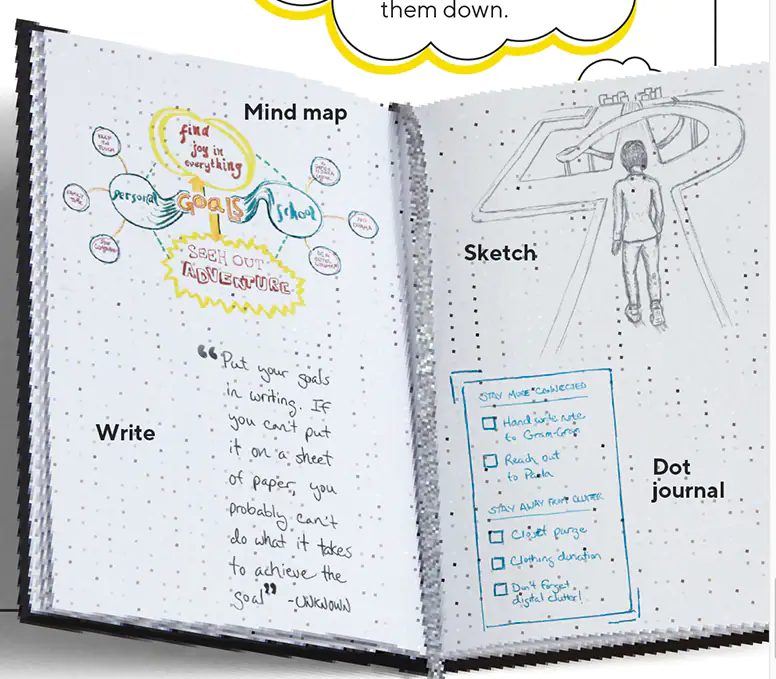 them down.
Mind map
find
joy in
everything
personal
GOALS
School
SEEK OUT
ADVENTURE
Write
“Put your goals
in writing. If
you can't put
it on a sheet
of paper, you
probably can't
do what it takes
to achieve the
goal” -UNKNOWN
Sketch
STAY MORE CONNECTED
Handwrite note
to Gram-Gram
Reach out
to Paula
STAY AWAY FROM CLUTTER
Closet purge
Clothing donation
Don't forget
digital clutter!
Dot
journal